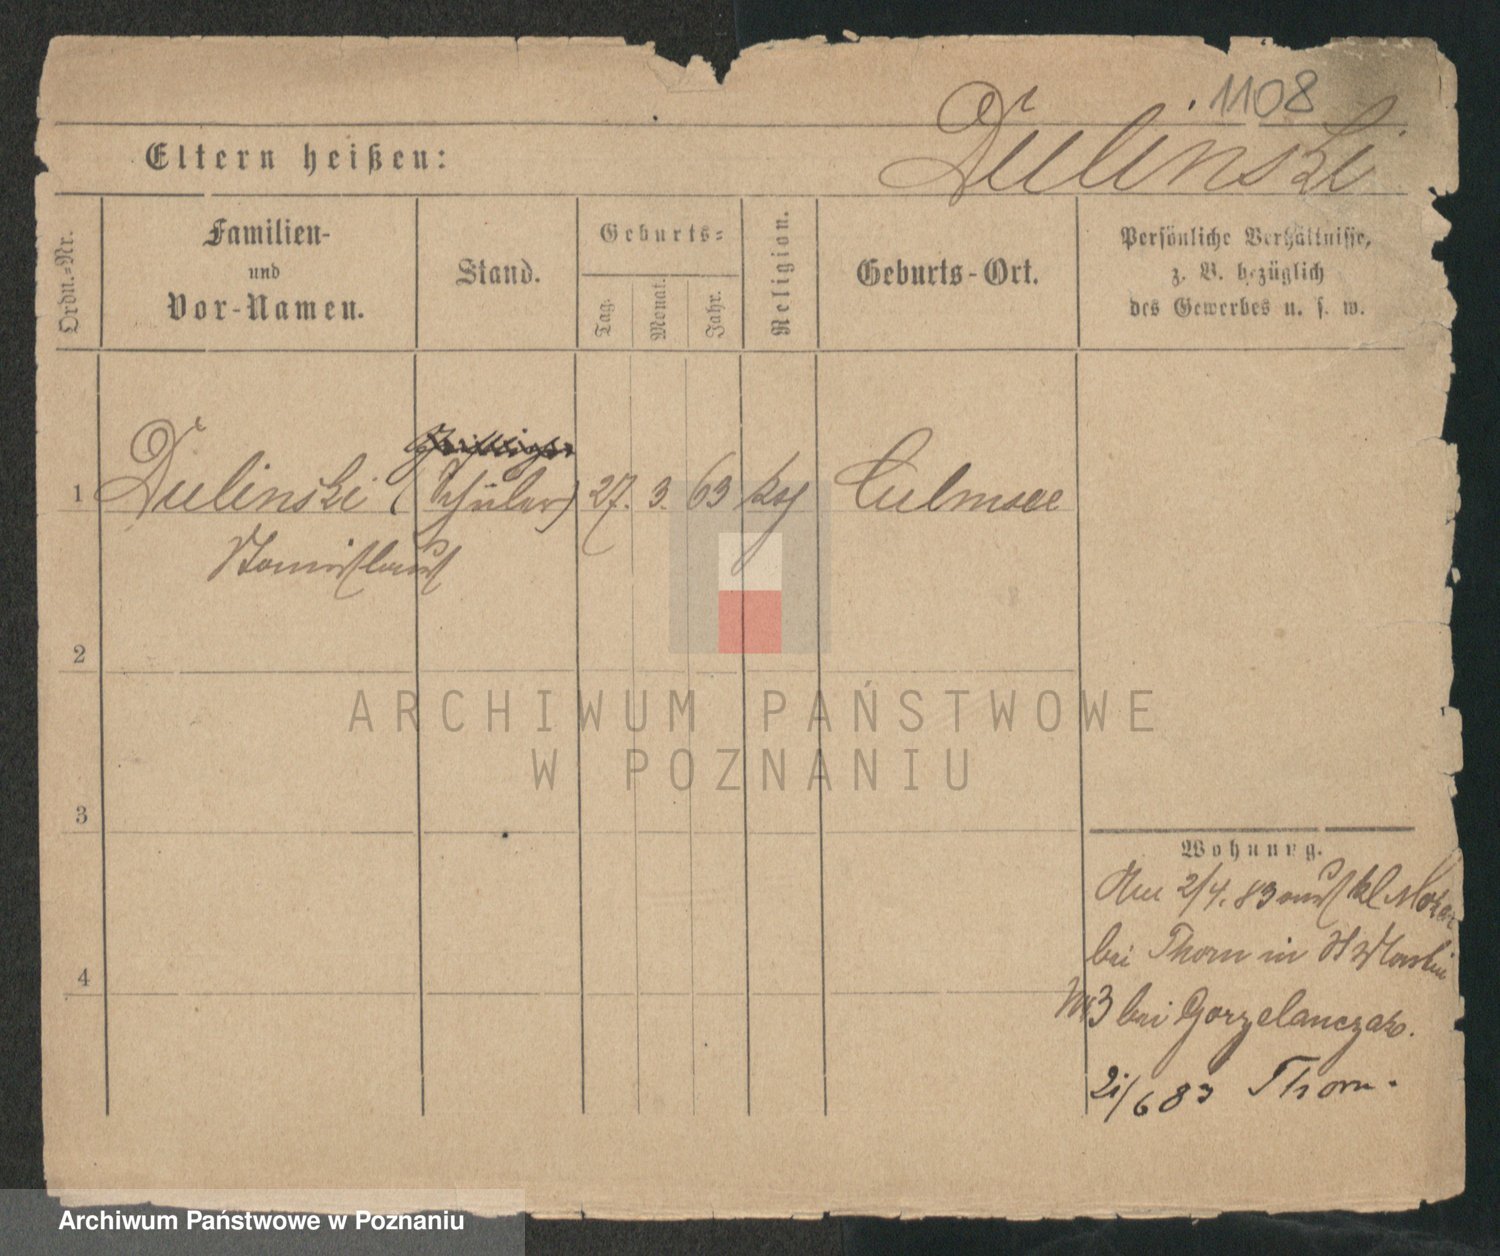 1108
Dulinski
Eltern heißen:
Ordn.-Nr.
Familien-
und
Vor-Namen.
Stand.
Geburts-
Tag.
Monat.
Jahr.
Religion.
Geburts-Ort.
Persönliche Verhältnisse,
z. B. bezüglich
des Gewerbes u. s. w.
1 Dulinski (Schüler) 27. 3. 63 Culmsee
Stanislaus
2
3
4
Wohnung.
2/4. 83 aus kl
bei Thorn in
3 bei Gorzelanczak.
2i/6 83 Thorn.
ARCHIWUM PAŃSTWOWE
W POZNANIU
Archiwum Państwowe w Poznaniu